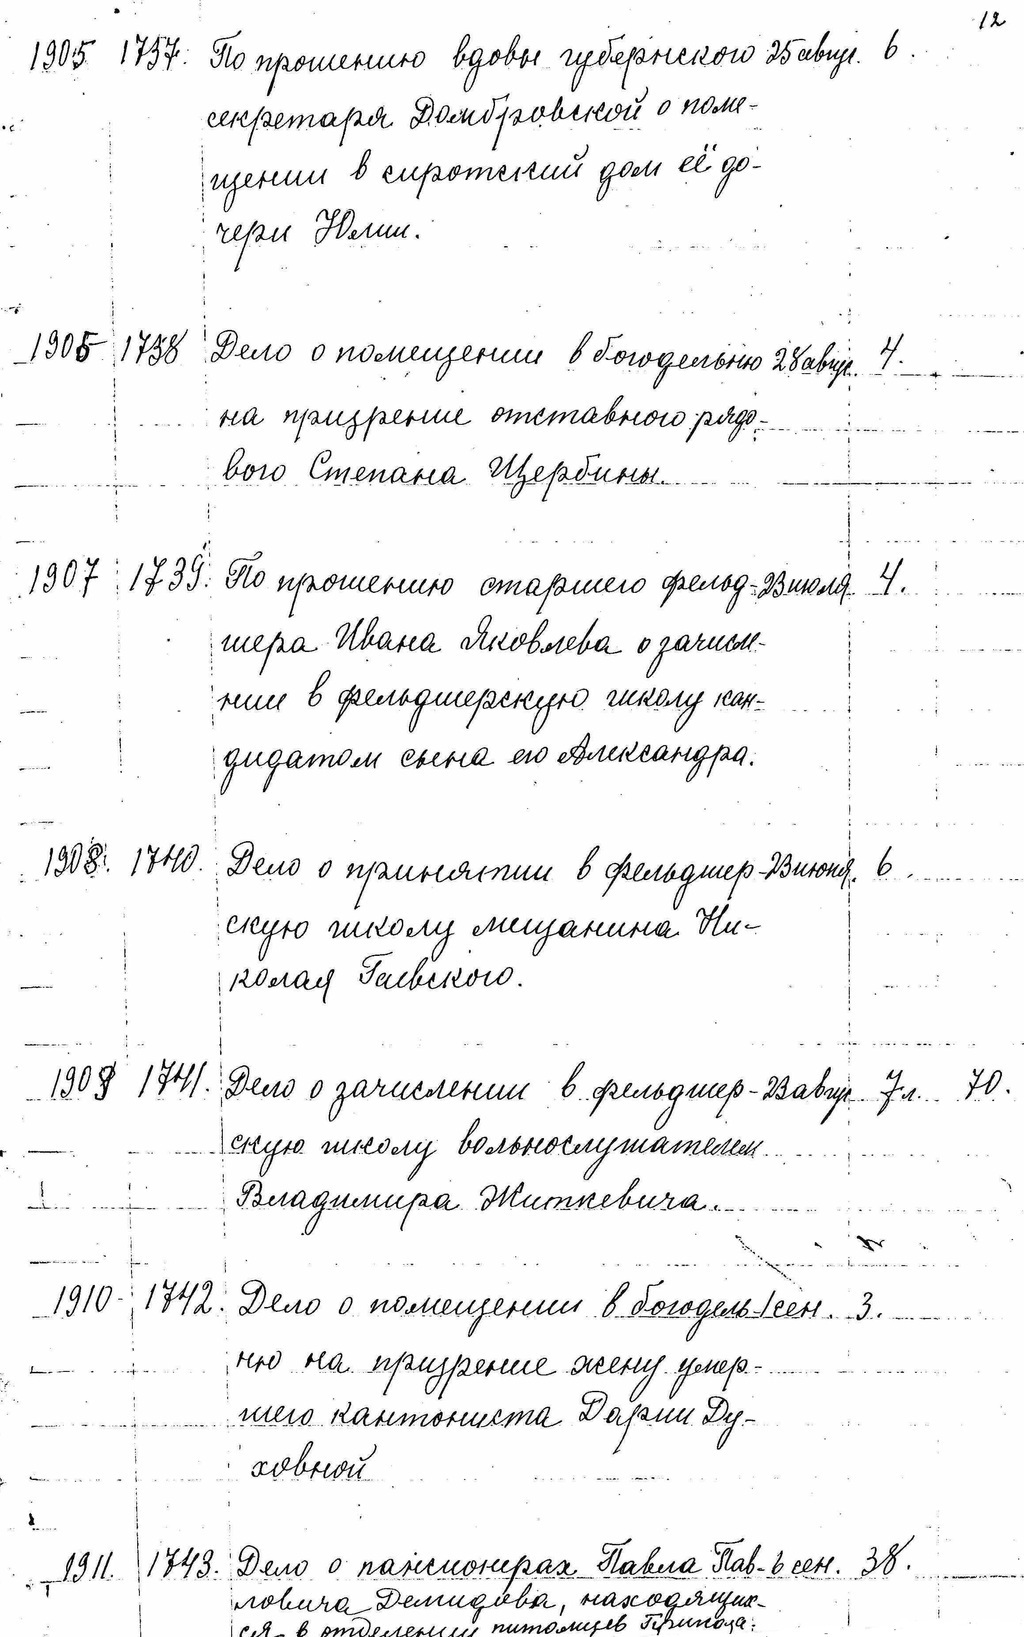 12
1905 1737. По прошению вдовы губернского 25 авгус. 6.
секретаря Домбровской о поме-
щении в сиротский дом её до-
чери Юлии.
1905 1738 Дело о помещении в богодельню 28 авгус. 4.
на призрение отставного рядо-
вого Степана Щербины.
1907 1739. По прошению старшего фельд- 23 июля 4.
шера Ивана Яковлева о зачисле-
нии в фельдшерскую школу кан-
дидатом сына его Александра.
1908. 1740. Дело о принятии в фельдшер- 23 июня. 6.
скую школу мещанина Ни-
колая Гаевского.
1909 1741. Дело о зачислении в фельдшер- 23 авгус 7 л. 70.
скую школу вольнослушателем
Владимира Житкевича.
1910 1742. Дело о помещении в богодель- 1 сен. 3.
ню на призрение жену умер-
шего кантониста Дарии Ду-
ховной
1911. 1743. Дело о пансионерах Павла Пав- 6 сен. 38.
ловича Демидова, находящих-
ся в отделении питомцев